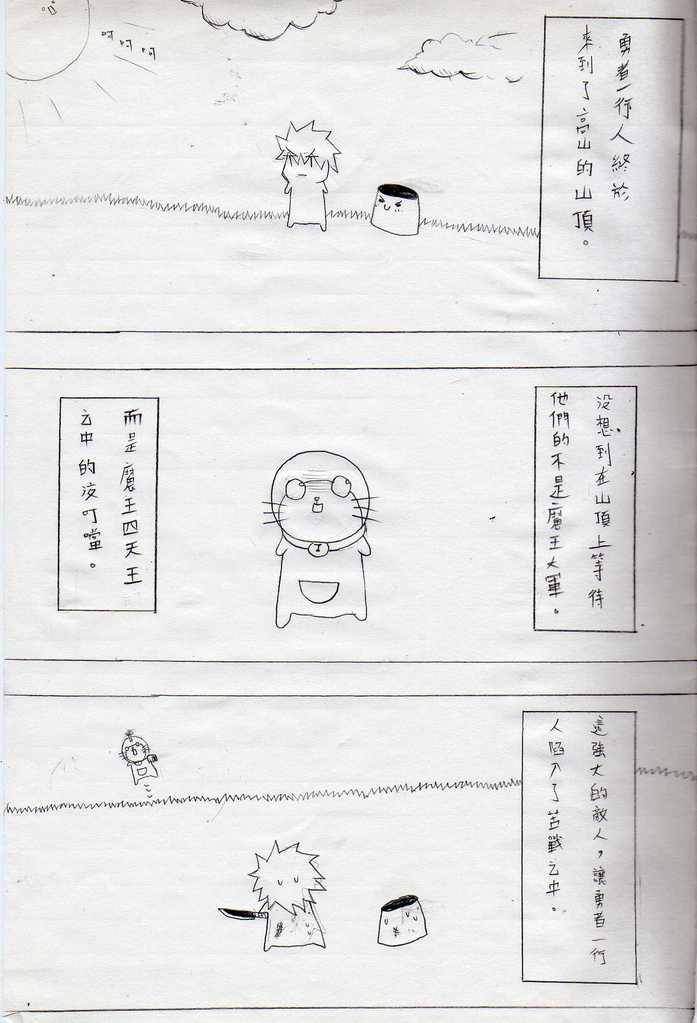 勇者一行人終於
來到了高山的山頂。
呵 呵 呵
没想到在山頂上等待
他們的不是魔王大軍。
而是魔王四天王
之中的沒叮噹。
這強大的敵人，讓勇者一行
人陷入了苦戰之中。